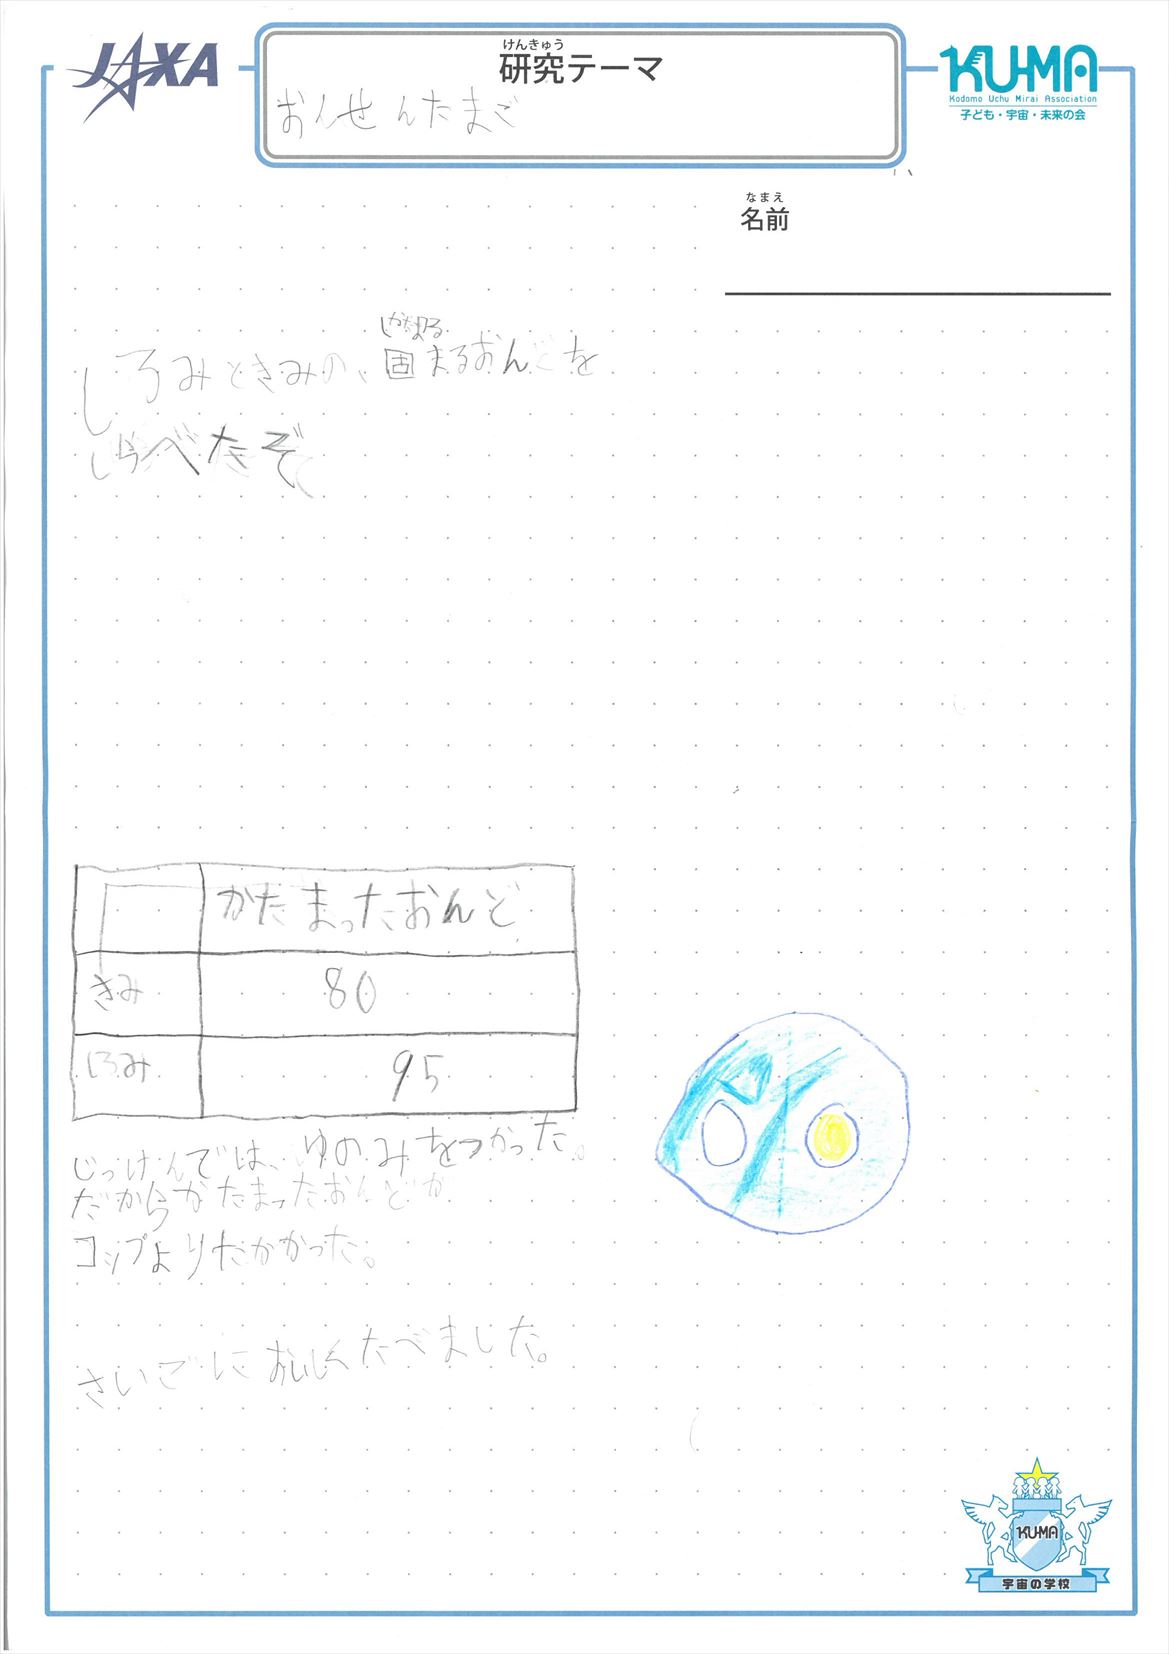 JAXA
けんきゅう
研究テーマ
おんせんたまご
KU-MA
Kodomo Uchu Mirai Association
子ども・宇宙・未来の会
なまえ
名前
かたまる
しろみときみの、固まるおんどを
しらべたぞ
かたまったおんど
きみ 80
しろみ 95
じっけんでは、ゆのみをつかった。
だからかたまったおんどが
コップよりたかかった。
さいごにおいしくたべました。
KU-MA
宇宙の学校